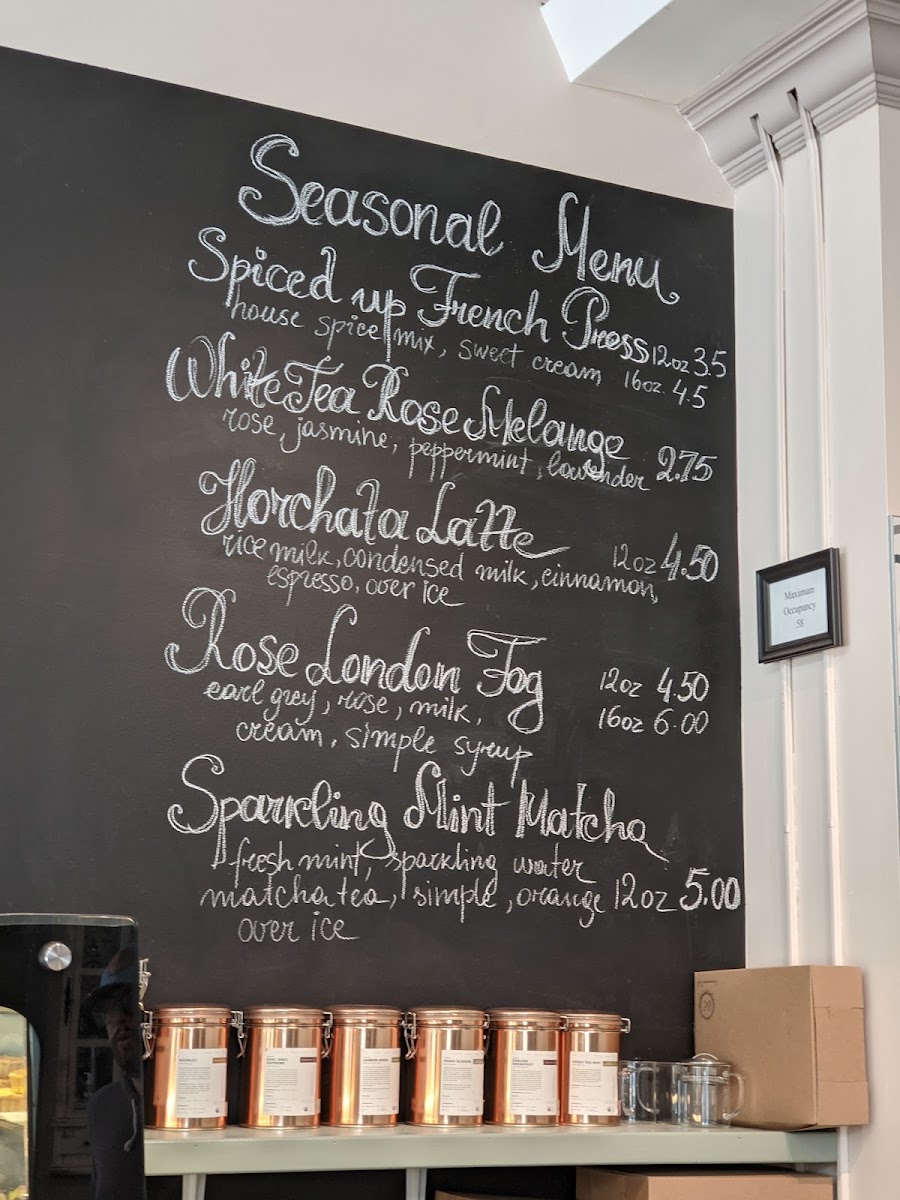 Seasonal Menu
Spiced up French Press 12oz 3.5
house spice mix, sweet cream 16oz. 4.5
White Tea Rose Melange
rose, jasmine, peppermint, lavender 2.75
Horchata Latte 12oz 4.50
rice milk, condensed milk, cinnamon,
espresso, over ice
Rose London Fog 12oz 4.50
earl grey, rose, milk, 16oz 6.00
cream, simple syrup
Sparkling Mint Matcha
fresh mint, sparkling water
matcha tea, simple, orange 12oz 5.00
over ice
Maximum
Occupancy
58